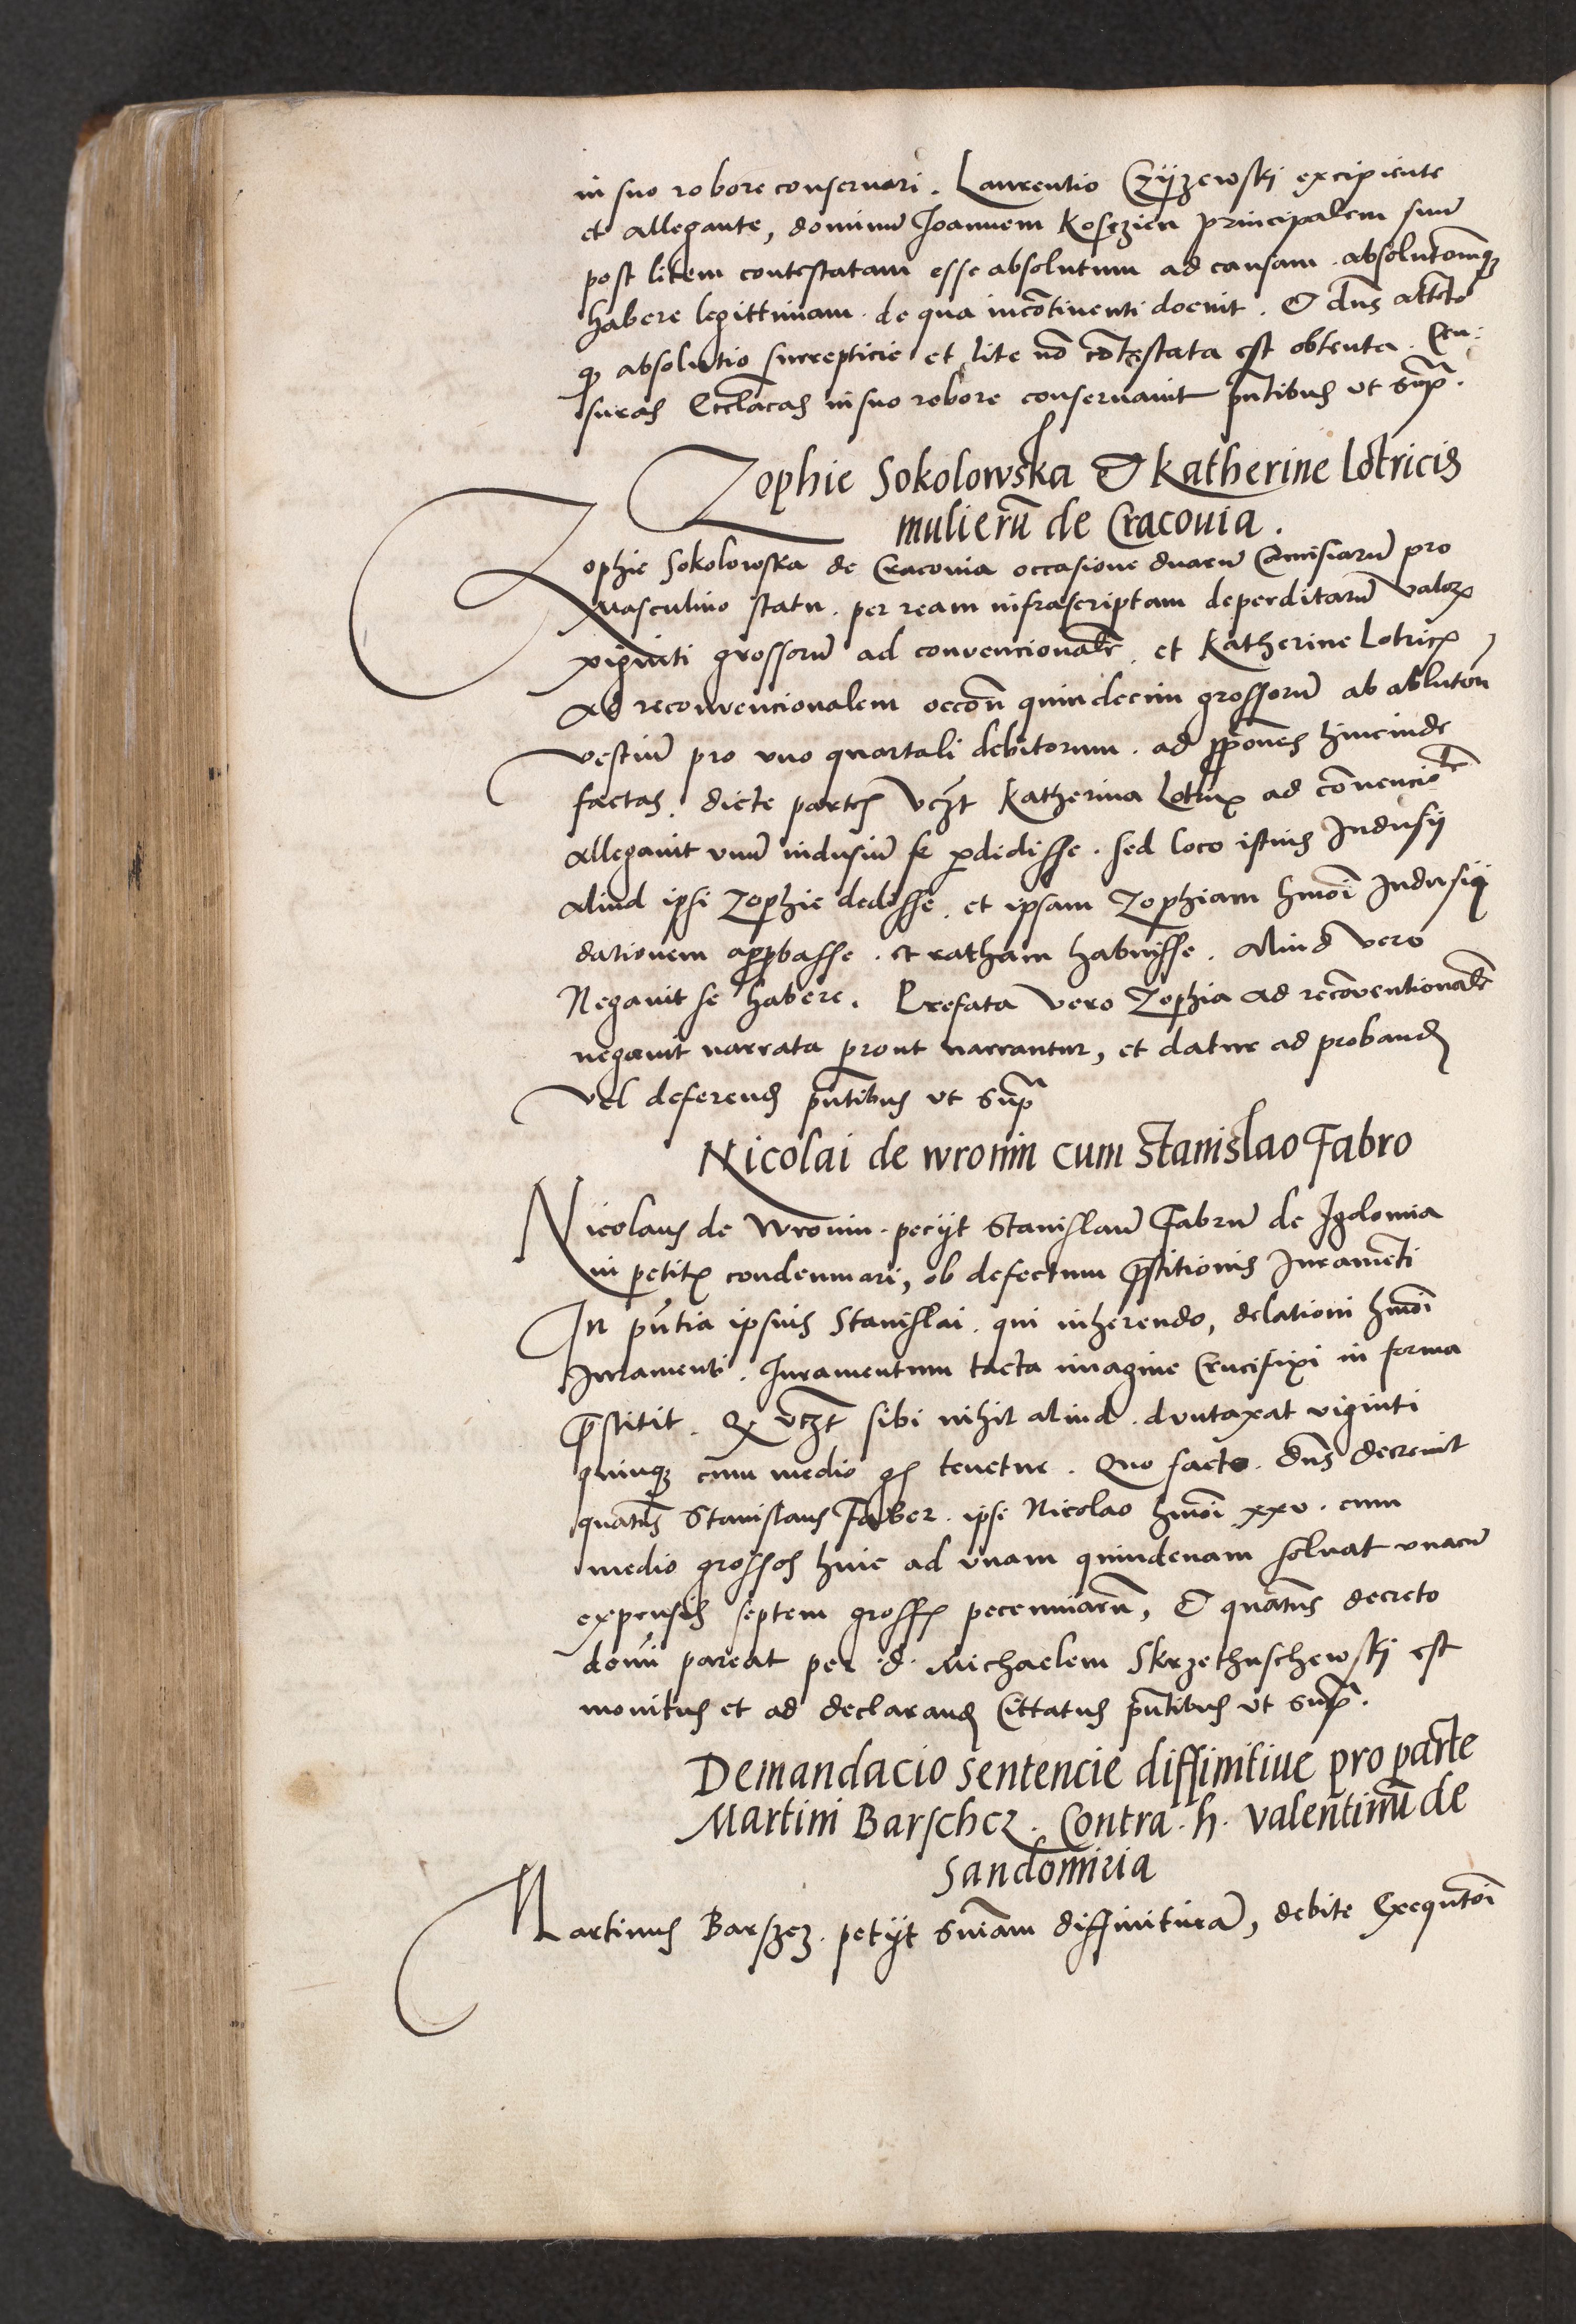 in suo robore conservari. Laurentio Czyzewskj excipiente
et allegante, dominũ Joannem Koszien principalem suũ
post litem contestatam esse absolutum ad causam. absolutõmq;
habere legittimam. de qua incõtinenti docuit. & dñs attẽto
q absolutio surrepticie et lite nõ cõtestata est obtenta. Cen:
suras Ecclãcas in suo robore conservavit pñtibus ut sup̃.
Zophie Sokolowska & Katherine lotricis
mulierũ de Cracovia.
Zophie Sokolowska de Cracovia occasione duarũ Camisiarũ pro
masculino statu. per ream infrascriptam deperditarũ valor
viginti grossorũ ad convencionalẽ, et Katherine Lotricis,
ad reconvencionalem occõn quindecim grossorũ ab ablutõn
vestiũ pro uno quartali debitorum. ad ꝓpõnes hincinde
factas. dicte partes vczt Katherina Lotrix ad cõvenciõlẽ
allegavit unũ indusiũ se perdidisse. sed loco istius Indusij
aliud ipsi Zophie dedisse. et ipsam Zophiam hmõi Indusij
dationem approbasse. et ratham habuisse. Aliud vero
Negavit se habere. Prefata vero Zophia ad recõventionalẽ
negavit narrata prout narrantur, et datur ad proband
vel deferend pñtibus ut sup̃
Nicolai de wronin cum Stanislao Fabro
Nicolaus de Wronin. pecijt Stanislaũ Fabrũ de Igolomia
in petitis condemnari, ob defectum p̃stitionis Juramẽti
In pñtia ipsius Stanislai. qui inherendo, delationi hmõi
Juramenti. Juramentum tacta imagine Crucifixi in forma
p̃stitit. Q vczt sibi nihil aliud. duntaxat viginti
quinq; cum medio gs tenetur. Quo facto. dñs decrevit
quatñs Stanislaus Faber. ipsi Nicolao hmõi xxv. cum
medio grossos hinc ad unam quindenam solvat unacũ
expensis septem gross pecuniarũ, & quatñs decreto
domĩ pareat per .d. Michaelem Skrzethuschewskj est
monitus et ad declarand Cittatus pñtibus ut sup̃.
Demandacio sentencie diffinitiue pro parte
Martini Barschcz. Contra. h. valentinũ de
Sandomiria
Martinus Barszcz. petijt Sniam diffinitiuã, debite Exequtõi